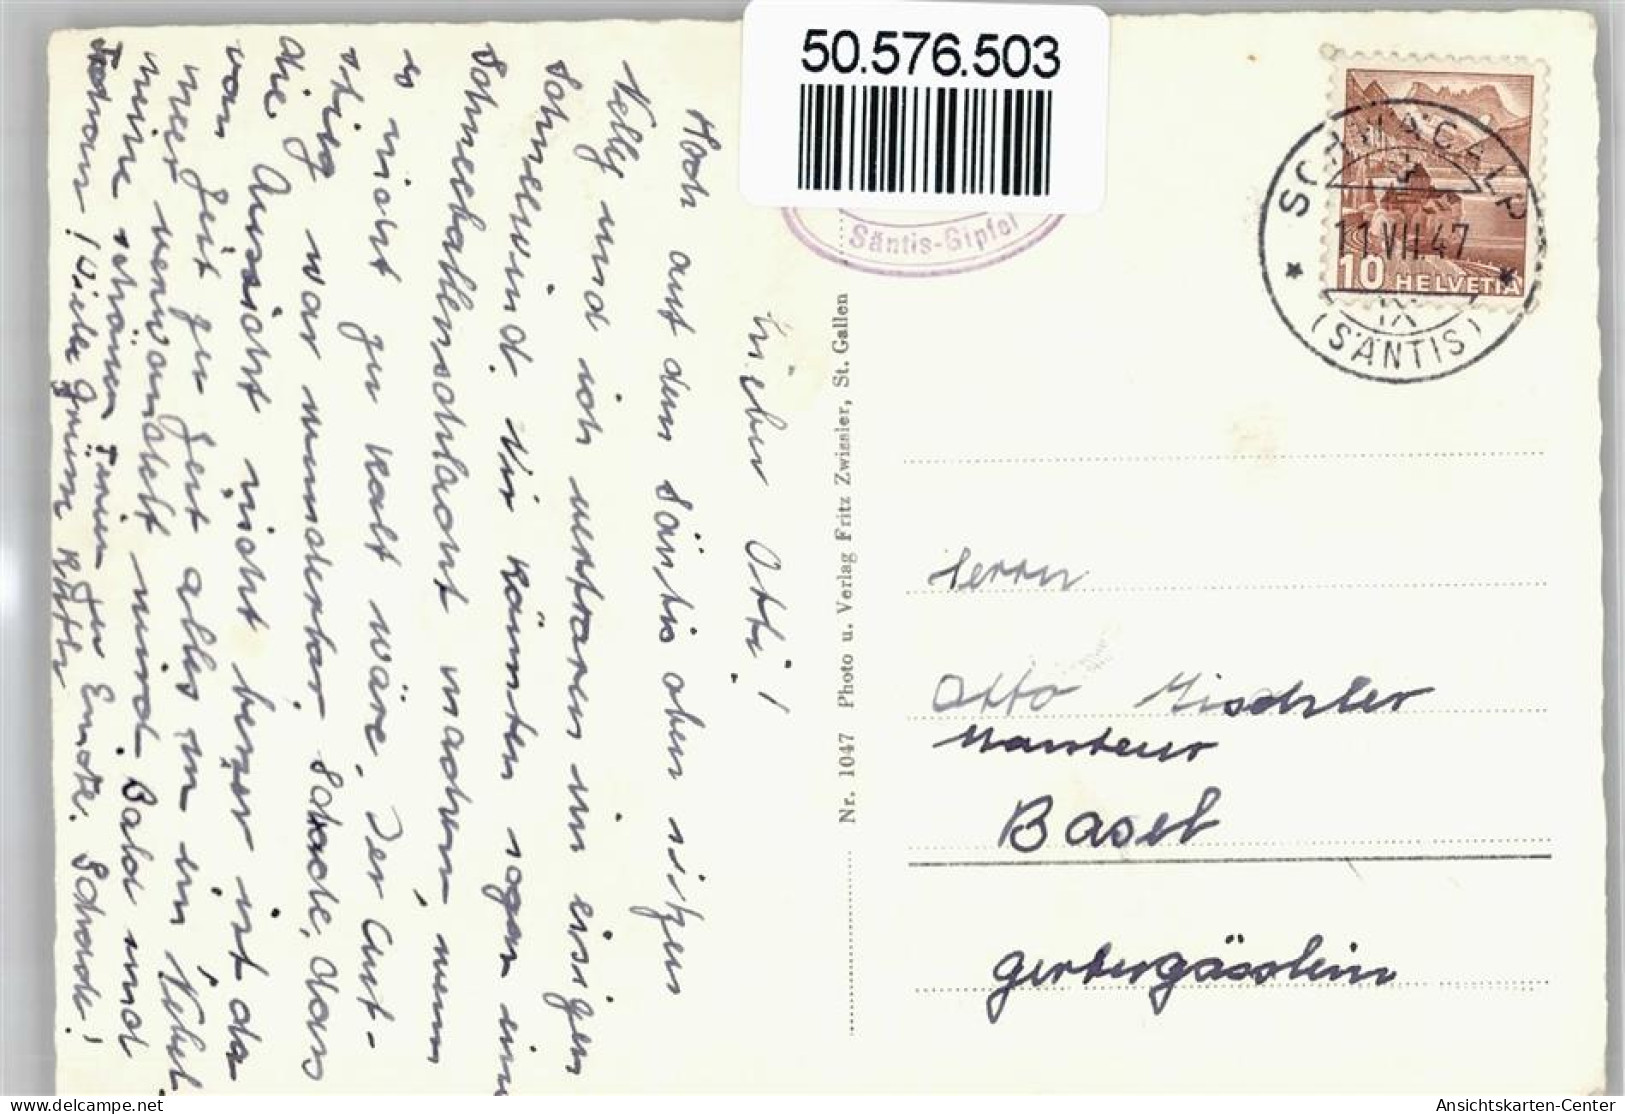 50.576.503
Säntis-Gipfel
SCHWÄGALP
11.VII.47
IX
(SÄNTIS)
10 HELVETIA
Lieber Otti!
Hoch auf dem Säntis oben sitzen
Nelly und ich verfroren im eisigen
Schneewind. Wir könnten sogar eine
Schneeballenschlacht machen, wenn
es nicht zu kalt wäre. Der Auf-
stieg war wunderbar. Schade, dass
die Aussicht nicht besser ist da
von Zeit zu Zeit alles in ein Nebel
meer verwandelt wird. Bald sind
meine schönen Ferien zu Ende. Schade!
Viele Grüsse
Nr. 1047 Photo u. Verlag Fritz Zwissler, St. Gallen
Herrn
Otto Mischler
Monteur
Basel
Gerbergässlein
Ansichtskarten-Center